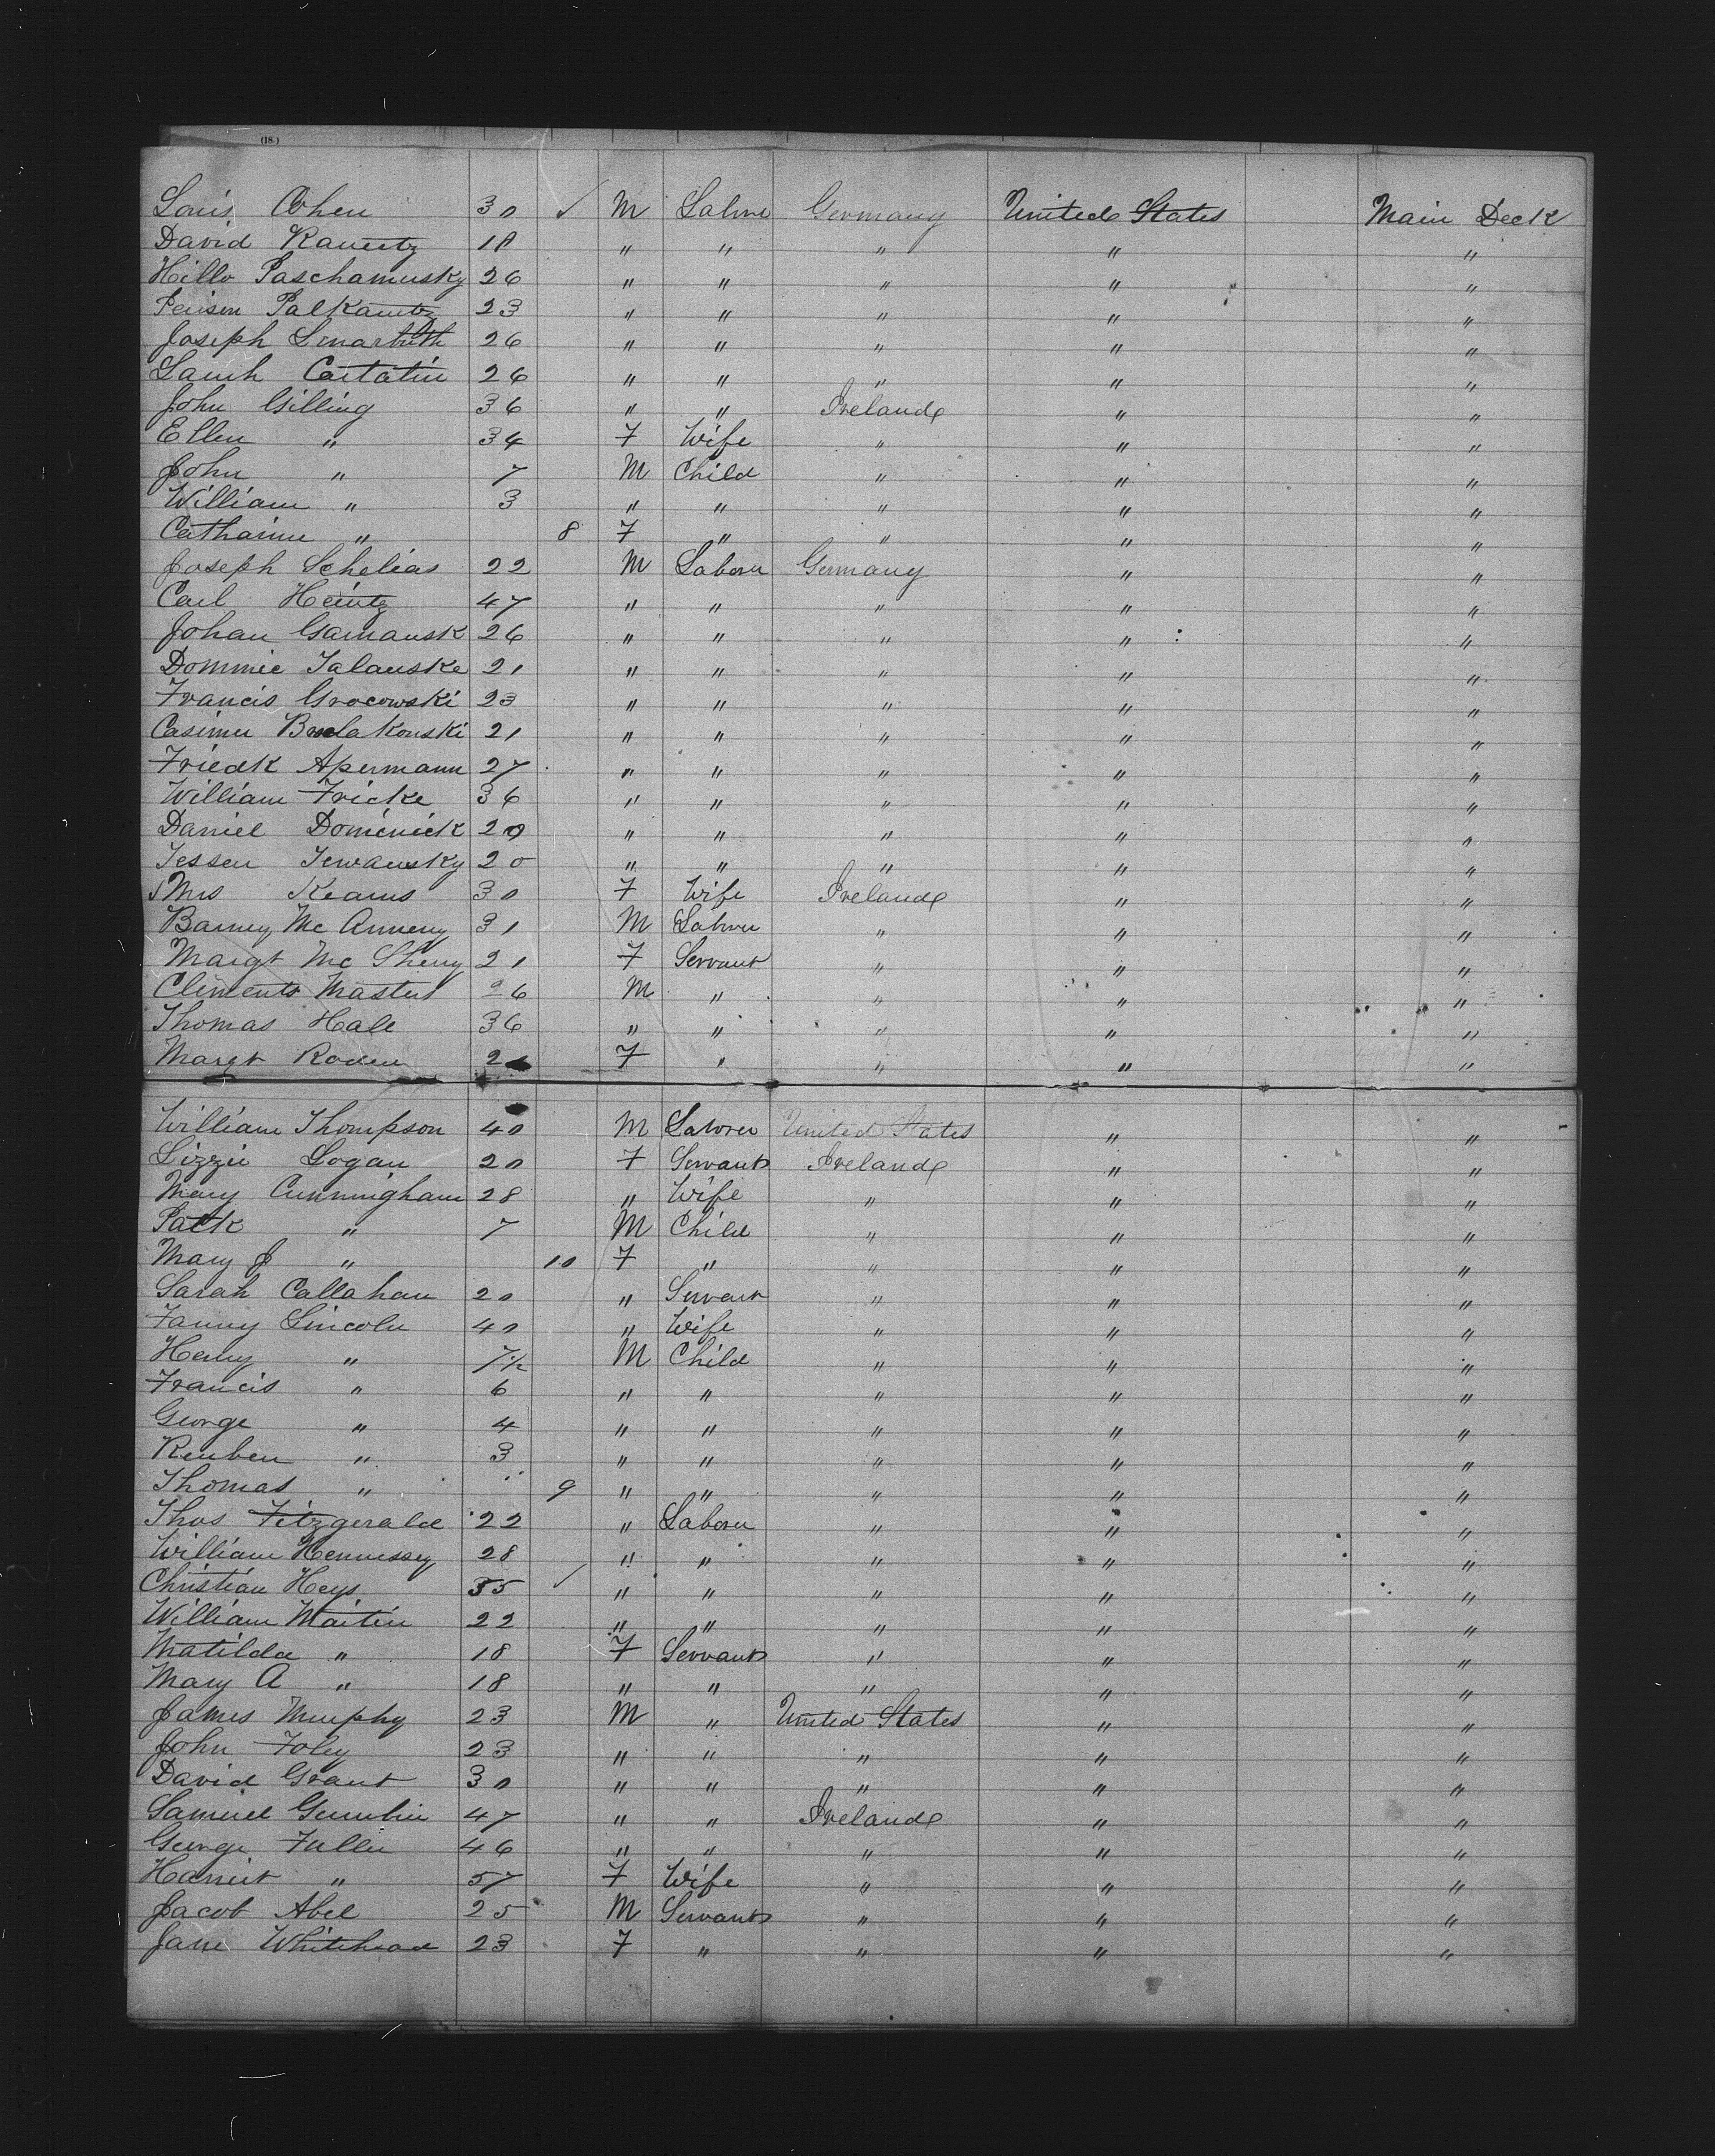 (18.)
Louis Cohen 30 ✓ M Labore Germany United States Main Deck
David Rauertz 18 " " " " "
Hillo Paschamusky 26 " " " " "
Peiisen Palkamtz 23 " " " " "
Joseph 26 " " " " "
26 " " " " "
John Gilling 36 " " Ireland " "
Ellen " 34 F Wife " " "
John " 7 M Child " " "
William " 3 " " " " "
Catharine " 8 F " " " "
Joseph Schelias 22 M Laborer Germany " "
Carl Heintz 47 " " " " "
Johan Gamansk 26 " " " " "
Dominic Jalauske 21 " " " " "
Francis Grocowski 23 " " " " "
Casimer 21 " " " " "
Friedk Apermann 27 " " " " "
William Fricke 36 " " " " "
Daniel Domenick 20 " " " " "
Jessen Jewansky 20 " " " " "
Mrs Kearns 30 F Wife Ireland " "
Barney Mc Anneny 31 M Laborer " " "
Margt Mc Sherry 21 F Servant " " "
Clements Masters 26 M " " " "
Thomas Hale 36 " " " " "
Margt Roden F " " " "
William Thompson 40 M Laborer United States " "
Lizzie Logan 20 F Servant Ireland " "
Mary Cunningham 28 " Wife " " "
Patk " 7 M Child " " "
Mary J " 10 F " " " "
Sarah Callahan 20 " Servant " " "
Fanny Lincoln 40 " Wife " " "
Henry " 7½ M Child " " "
Francis " 6 " " " " "
George " 4 " " " " "
Reuben " 3 " " " " "
Thomas " 9 " " " " "
Thos Fitzgerald 22 " Laborer " " "
William Hennessey 28 " " " " "
Christian Heys 35 ✓ " " " " "
William Martin 22 " " " " "
Matilda " 18 F Servant " " "
Mary A " 18 " " " " "
James Murphy 23 M " United States " "
John Foley 23 " " " " "
David Grant 30 " " " " "
Samuel 47 " " Ireland " "
George Fuller 46 " " " " "
Harriet " 57 F Wife " " "
Jacob Abel 25 M Servant " " "
Jane Whitehead 23 F " " " "